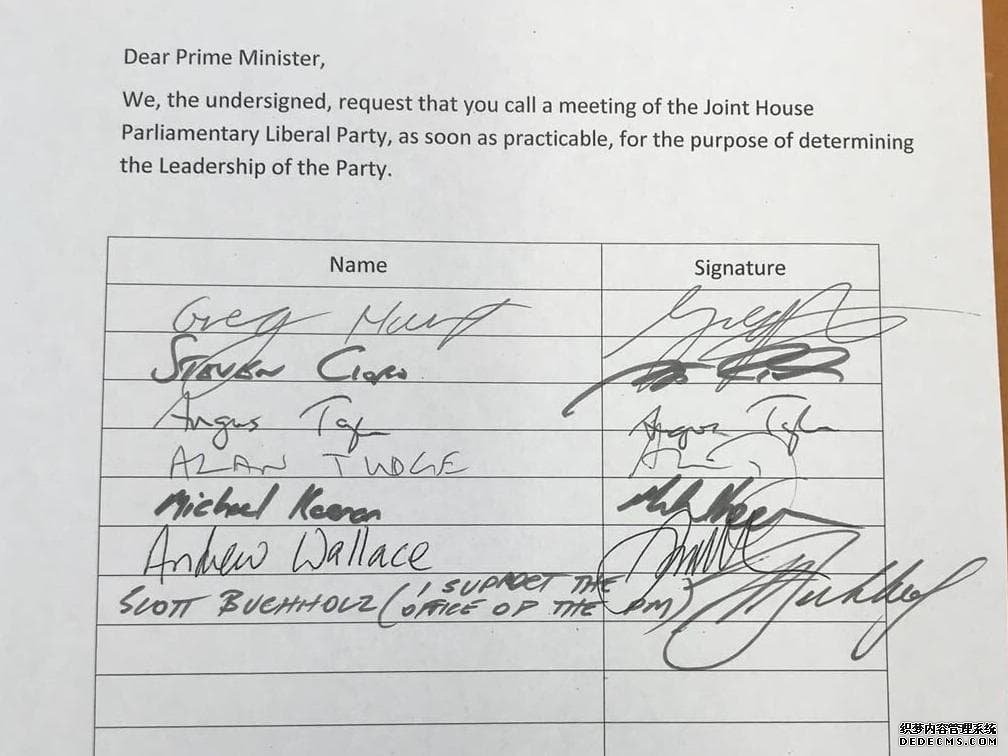 Dear Prime Minister,
We, the undersigned, request that you call a meeting of the Joint House
Parliamentary Liberal Party, as soon as practicable, for the purpose of determining
the Leadership of the Party.
Name Signature
Greg Hunt
STEVEN Ciobo
Angus Taylor Angus Taylor
ALAN TUDGE
Michael Keenan
Andrew Wallace
SCOTT BUCHHOLZ (I SUPPORT THE
OFFICE OF THE PM)
织梦内容管理系统
DEDECMS.COM